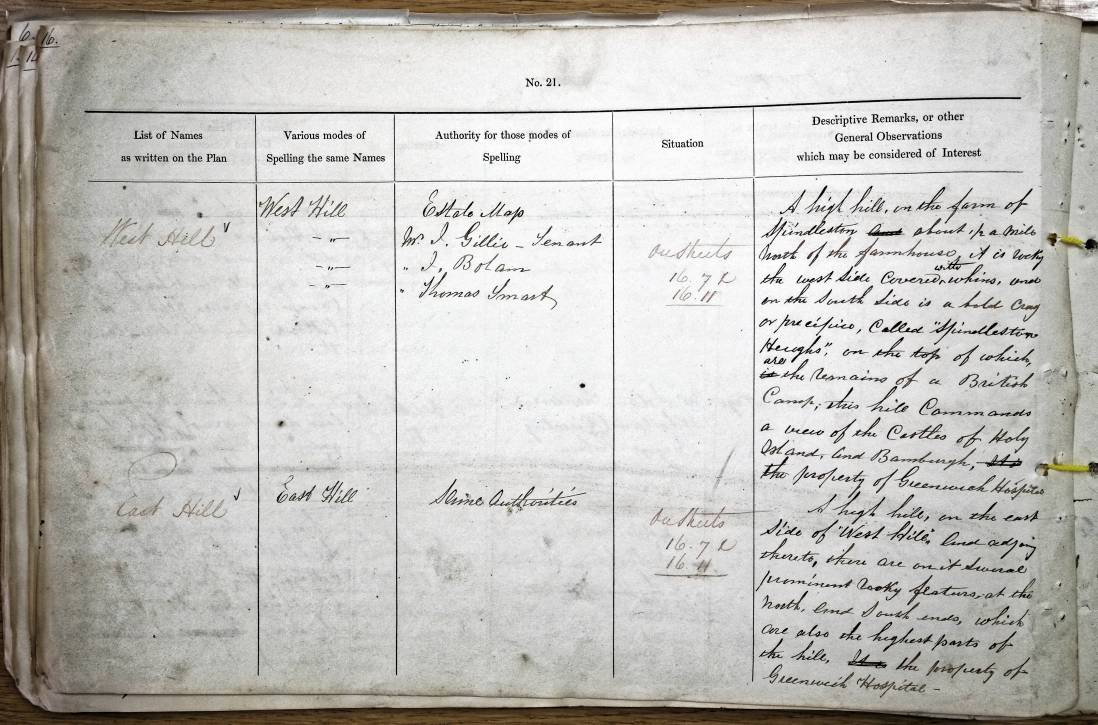 6. 16.
No. 21.
List of Names
as written on the Plan
Various modes of
Spelling the same Names
Authority for those modes of
Spelling
Situation
Descriptive Remarks, or other
General Observations
which may be considered of Interest
West Hill
West Hill
- " -
- " -
- " -
Estate Map
Mr. J. Gillie - Tenant
" J. Bolam
" Thomas Smart
On Sheets
16. 7 &
16. 11
A high hill, on the farm of
Spindleston and about ½ a mile
North of the farmhouse, it is rocky
the west side Covered with whins, and
on the South Side is a bold Crag
or precipice, Called "Spindleston
Heughs", on the top of which,
are the remains of a British
Camp, this hill Commands
a view of the Castles of Holy
Island, and Bamburgh, It is
the property of Greenwich Hospital
East Hill
East Hill
Same Authorities
On Sheets
16. 7 &
16. 11
A high hill, on the east
Side of "West Hill", and adjoing
thereto, there are on it Several
prominent rocky features, at the
North, and South ends, which
are also the highest parts of
the hill, It is the property of
Greenwich Hospital -